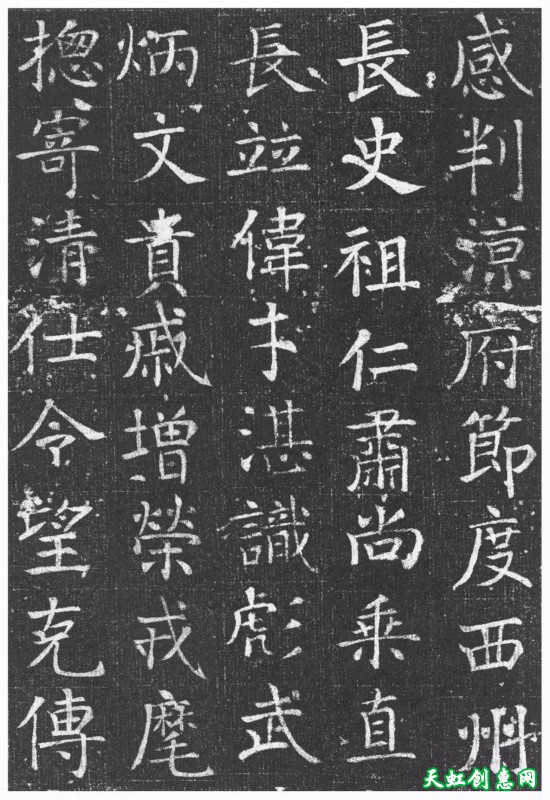 感判涼府節度西州
長史祖仁肅尚乗直
長並偉才湛識彪武
炳文貴戚增榮戎麾
揔寄清仕令望克傳
天虹创惠网